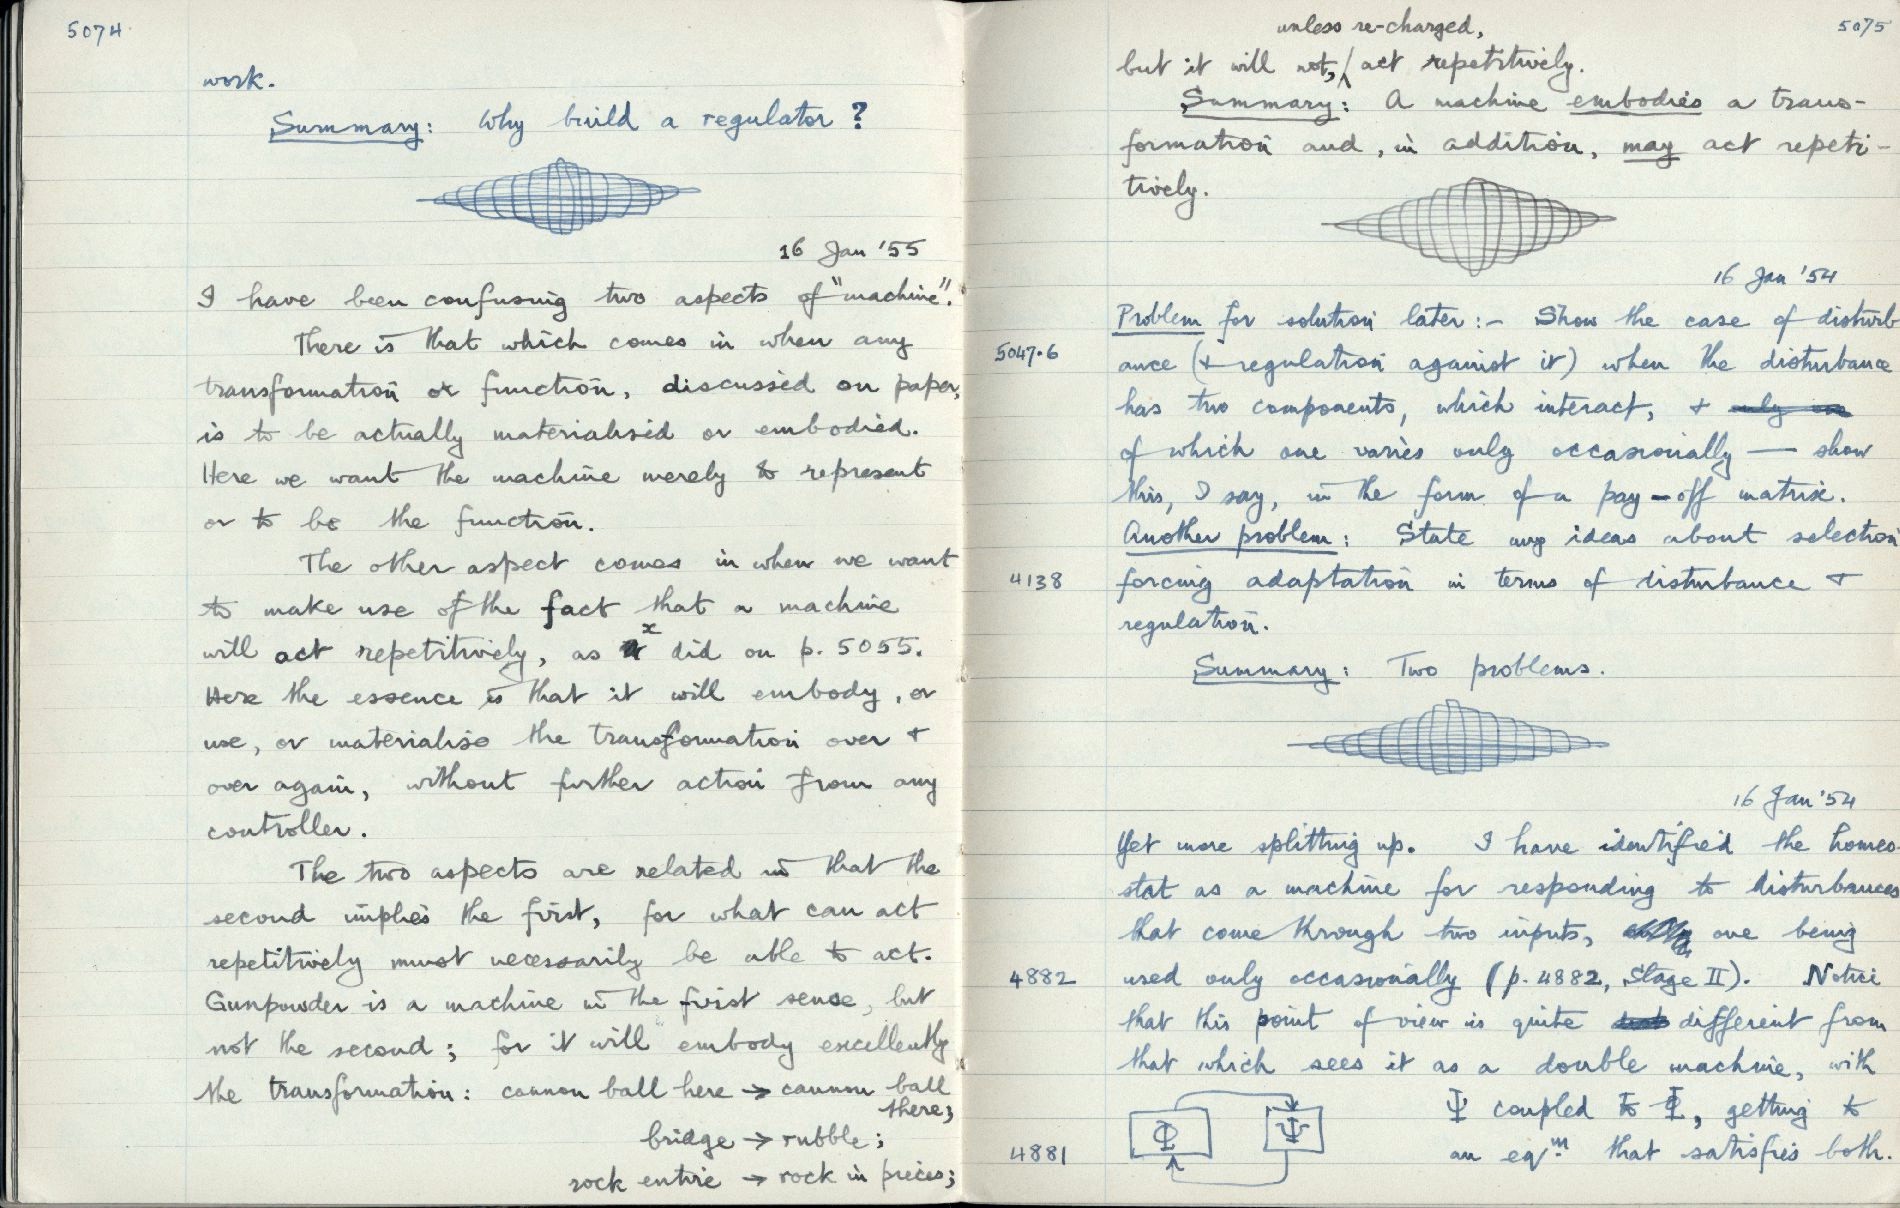 5074
work.
Summary: Why build a regulator?
16 Jan '55
I have been confusing two aspects of "machine".
There is that which comes in when any
transformation or function, discussed on paper,
is to be actually materialised or embodied.
Here we want the machine merely to represent
or to be the function.
The other aspect comes in when we want
to make use of the fact that a machine
will act repetitively, as x did on p. 5055.
Here the essence is that it will embody, or
use, or materialise the transformation over +
over again, without further action from any
controller.
The two aspects are related in that the
second implies the first, for what can act
repetitively must necessarily be able to act.
Gunpowder is a machine in the first sense, but
not the second; for it will embody excellently
the transformation: cannon ball here → cannon ball
there;
bridge → rubble;
rock entire → rock in pieces;
5075
unless re-charged,
but it will not, act repetitively.
Summary: A machine embodies a trans-
formation and, in addition, may act repeti-
tively.
16 Jan '54
Problem for solution later:- Show the case of disturb
5047.6 ance (+ regulation against it) when the disturbance
has two components, which interact, + only on
of which one varies only occasionally — show
this, I say, in the form of a pay-off matrix.
Another problem: State my ideas about selection
4138 forcing adaptation in terms of disturbance +
regulation.
Summary: Two problems.
16 Jan '54
Yet more splitting up. I have identified the homeo-
stat as a machine for responding to disturbances
that come through two inputs, one being
4882 used only occasionally (p. 4882, Stage II). Notice
that this point of view is quite different from
that which sees it as a double machine, with
Φ Ψ Ψ coupled to Φ, getting to
4881 an eqm. that satisfies both.